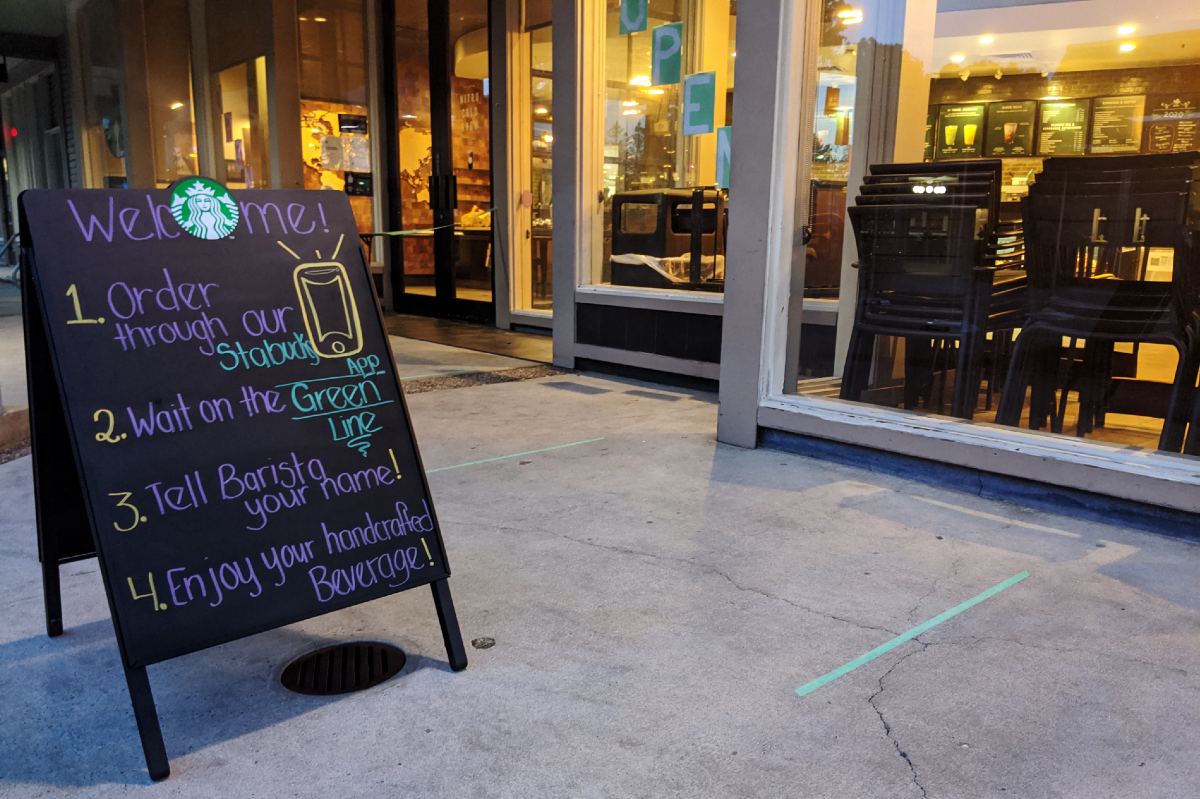 Welcome!
1. Order
through our
Stabucks
App
2. Wait on the Green
Line
3. Tell Barista
your name!
4. Enjoy your handcrafted
Beverage!
OPEN
NITRO
COLD
2020